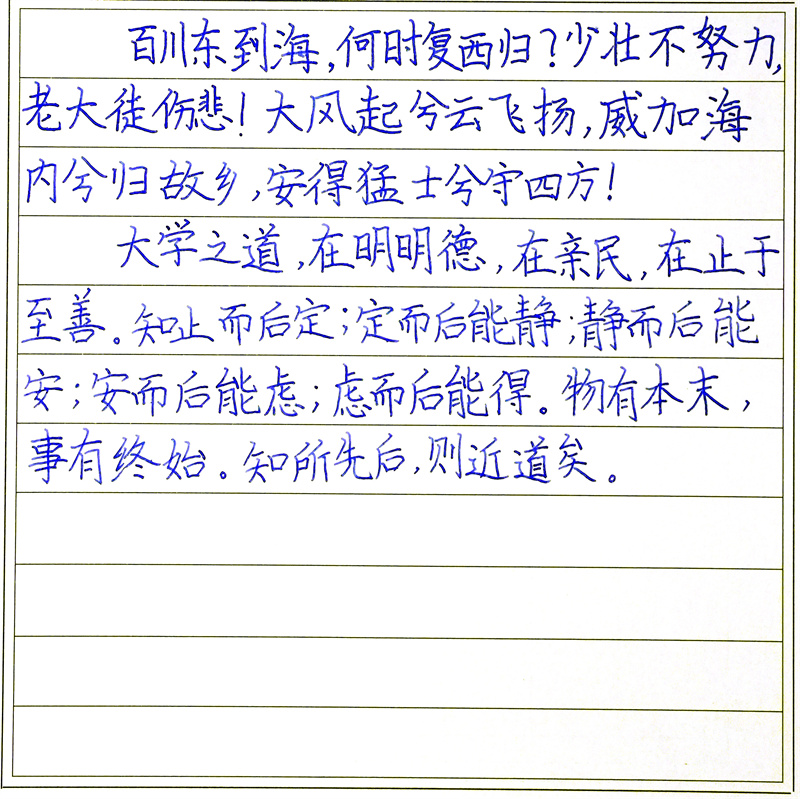 百川东到海，何时复西归？少壮不努力，
老大徒伤悲！大风起兮云飞扬，威加海
内兮归故乡，安得猛士兮守四方！
大学之道，在明明德，在亲民，在止于
至善。知止而后定；定而后能静；静而后能
安；安而后能虑；虑而后能得。物有本末，
事有终始。知所先后，则近道矣。